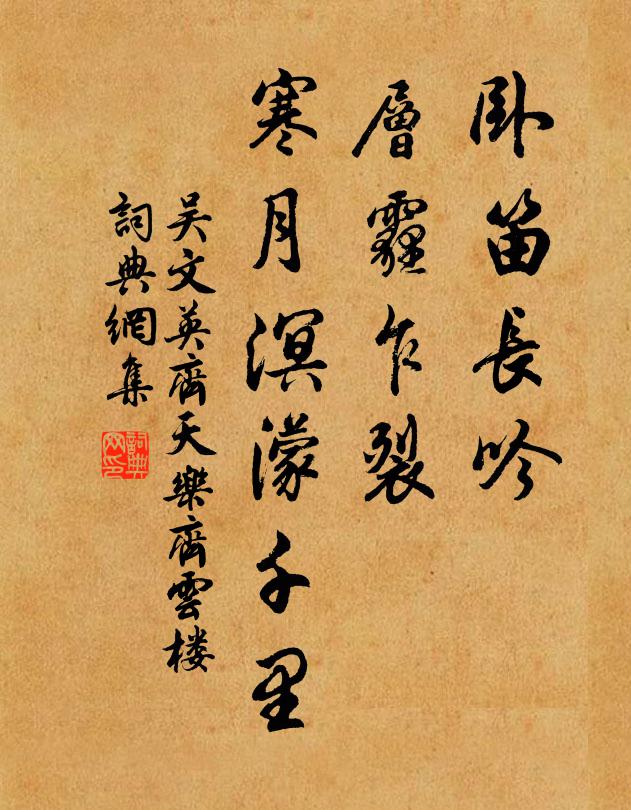 卧笛長吟
層霾乍裂
寒月溟濛千里
吴文英齊天樂齊雲楼
詞典網集
詞典
网印